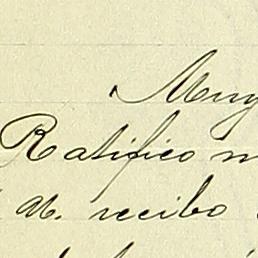 Muy
Ratifico m
recibo